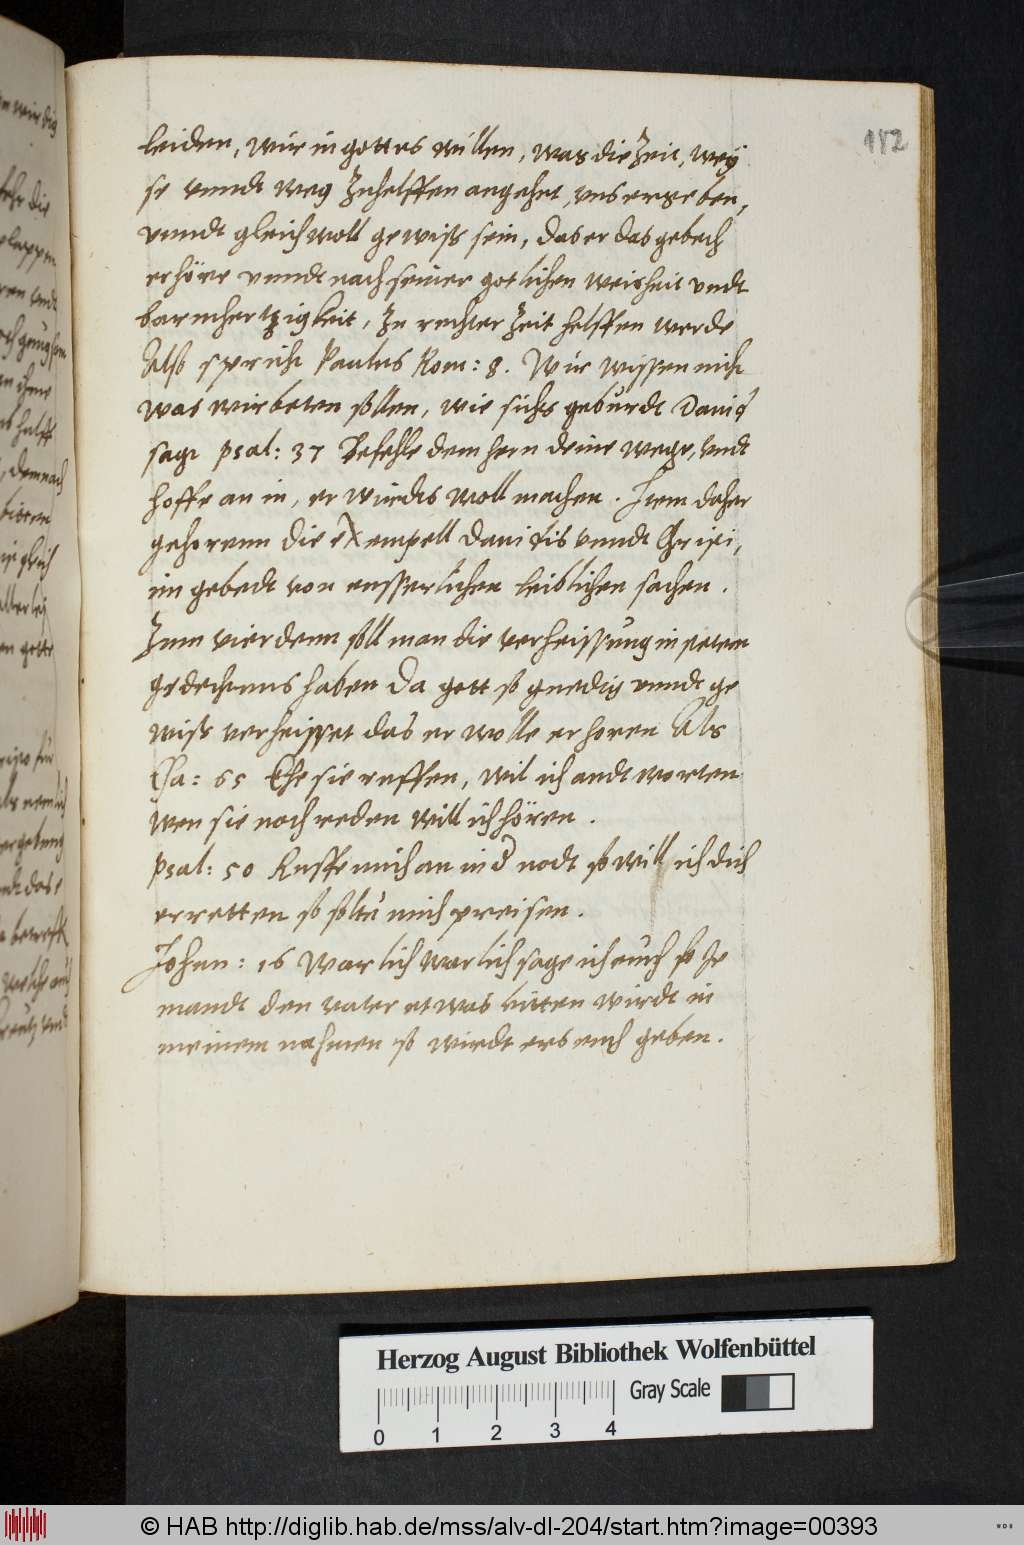 182
leiden, wir in gottes willen, was die Zeit, wey
se vnndt weg Zuhelffen angehet, vns ergeben,
vnndt gleichwoll gewiß sein, das er das gebech
erhöre vnndt nach seiner gotlichen weisheit vndt
barmhertzigkeit, Zu rechter Zeit helffen werde
Alß spricht Paulus Rom: 8. Wir wissen nicht
was wir beten sollen, wie sichs geburdt Dauid
sagt psal: 37 Befehle dem hern deine wege, vndt
hoffe an in, er wirdts woll machen. Item daher
gehorenn die exempell Dauidis vnndt Christi,
im gebedt von eusserlichen leiblichen sachen.
Zum vierdenn soll man die verheissung in stetem
gedechtnus haben Da gott so gnedig vnndt ge
wiß verheisset das er wolle erhoren Als
Esa: 65 Ehe sie ruffen, wil ich andtworten
wen sie noch reden will ich hören.
psal: 50 Ruffe mich an in der nodt so will ich dich
erretten so soltu mich preisen.
Johan: 16 Warlich warlich sage ich euch so Je
mandt den vater etwas bitten wirdt in
meinem nahmen so wirdt ers euch geben.
Herzog August Bibliothek Wolfenbüttel
Gray Scale
0 1 2 3 4
© HAB http://diglib.hab.de/mss/alv-dl-204/start.htm?image=00393